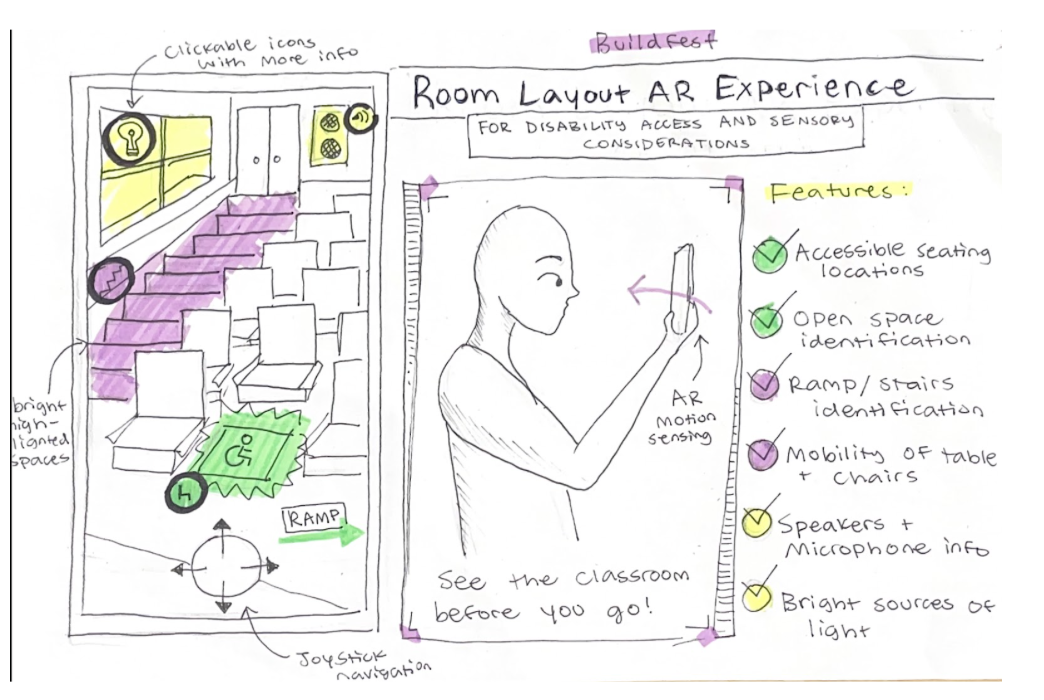 Clickable icons
with more info
Buildfest
Room Layout AR Experience
FOR DISABILITY ACCESS AND SENSORY
CONSIDERATIONS
bright
high-
lighted
spaces
RAMP
Joystick
navigation
AR
motion
sensing
See the classroom
before you go!
Features:
Accessible seating
locations
Open space
identification
Ramp/stairs
identification
Mobility of table
+ chairs
Speakers +
Microphone info
Bright sources of
light